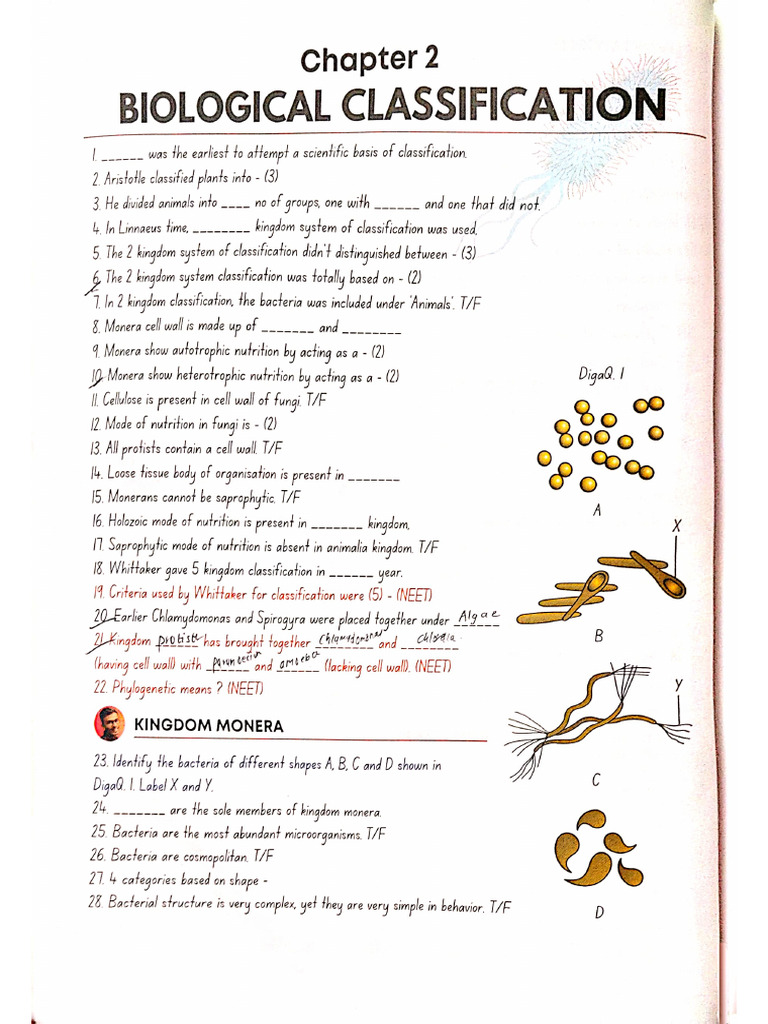 Chapter 2
BIOLOGICAL CLASSIFICATION
1. ______ was the earliest to attempt a scientific basis of classification.
2. Aristotle classified plants into - (3)
3. He divided animals into ____ no of groups, one with ______ and one that did not.
4. In Linnaeus time, ________ kingdom system of classification was used.
5. The 2 kingdom system of classification didn't distinguished between - (3)
6. The 2 kingdom system classification was totally based on - (2)
7. In 2 kingdom classification, the bacteria was included under 'Animals'. T/F
8. Monera cell wall is made up of _______ and ________
9. Monera show autotrophic nutrition by acting as a - (2)
10. Monera show heterotrophic nutrition by acting as a - (2)
DigaQ. 1
11. Cellulose is present in cell wall of fungi. T/F
12. Mode of nutrition in fungi is - (2)
13. All protists contain a cell wall. T/F
14. Loose tissue body of organisation is present in _______
15. Monerans cannot be saprophytic. T/F
A
16. Holozoic mode of nutrition is present in _______ kingdom.
X
17. Saprophytic mode of nutrition is absent in animalia kingdom. T/F
18. Whittaker gave 5 kingdom classification in ______ year.
19. Criteria used by Whittaker for classification were (5) - (NEET)
20. Earlier Chlamydomonas and Spirogyra were placed together under Algae
B
21. Kingdom protista has brought together and
(having cell wall) with and amoeba (lacking cell wall). (NEET)
22. Phylogenetic means ? (NEET)
Y
KINGDOM MONERA
23. Identify the bacteria of different shapes A, B, C and D shown in
DigaQ. 1. Label X and Y.
C
24. _______ are the sole members of kingdom monera.
25. Bacteria are the most abundant microorganisms. T/F
26. Bacteria are cosmopolitan. T/F
27. 4 categories based on shape -
28. Bacterial structure is very complex, yet they are very simple in behavior. T/F
D